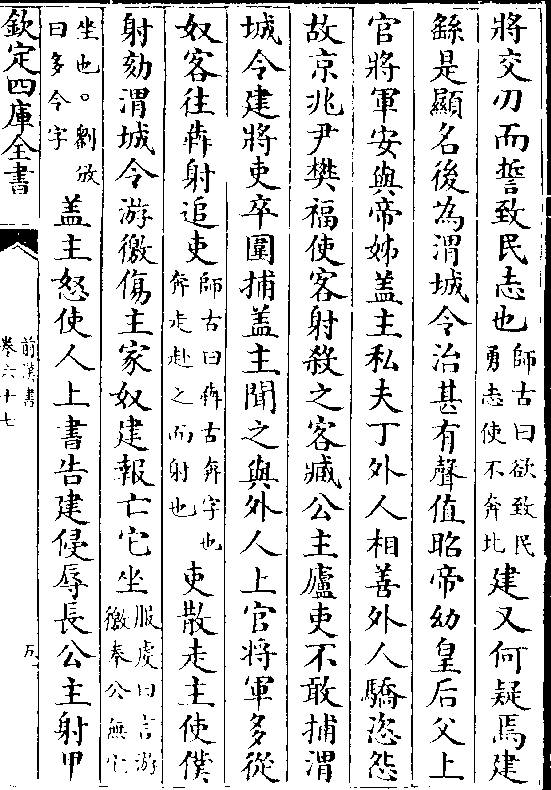 將交刃而誓致民志也師古曰欲致民勇志使不奔北建又何疑焉建
繇是顯名後為渭城令治甚有聲值昭帝幼皇后父上
官將軍安與帝姊蓋主私夫丁外人相善外人驕恣怨
故京兆尹樊福使客射殺之客臧公主廬吏不敢捕渭
城令建將吏卒圍捕蓋主聞之與外人上官將軍多從
奴客往犇射追吏師古曰犇古奔字也奔走赴之而射也吏散走主使僕
射劾渭城令游徼傷主家奴建報亡它坐服虔曰言游徼奉公無它
坐也。劉攽曰多今字蓋主怒使人上書告建侵辱長公主射甲
欽定四庫全書
前漢書
卷六十七